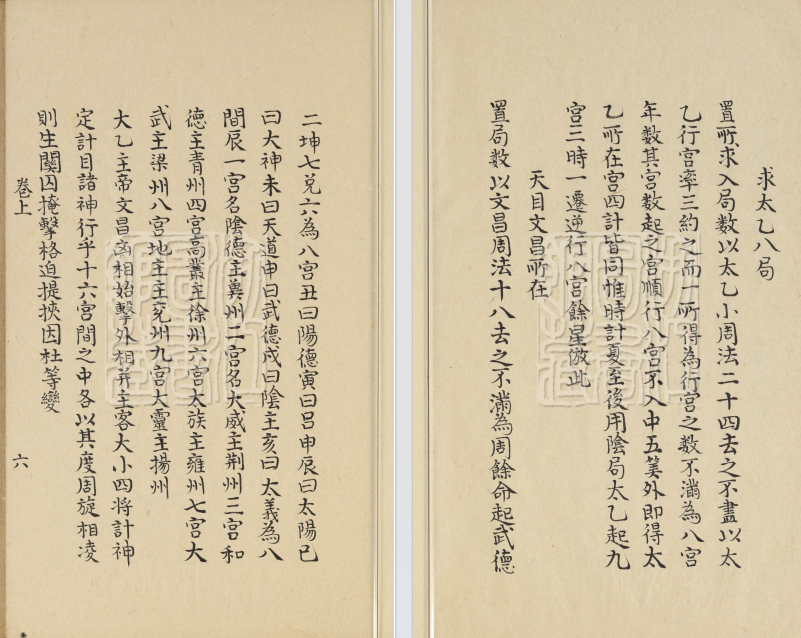 求太乙八局
置所求入局數以太乙小周法二十四去之不盡以太
乙行宮率三約之而一所得為行宮之數不滿為八宮
年數其宮數起之宮順行八宮不入中五筭外即得太
乙所在宮四計皆同惟時計夏至後用陰局太乙起九
宮三時一遷逆行八宮餘星倣此
天目文昌所在
置局數以文昌周法十八去之不滿為周餘命起武德
二坤七兌六為八宮丑曰陽德寅曰呂申辰曰太陽巳
曰大神未曰天道申曰武德戌曰陰主亥曰太義為八
間辰一宮名陰德主兾州二宮名大威主荆州三宮和
德主青州四宮高叢主徐州六宮太族主雍州七宮大
武主梁州八宮地主主兖州九宮大靈主揚州
大乙主帝文昌相始擊外相并主客大小四将計神
定計目諸神行乎十六宮間之中各以其度周旋相凌
則生關囚掩擊格迫提挾因杜等變
卷上
六